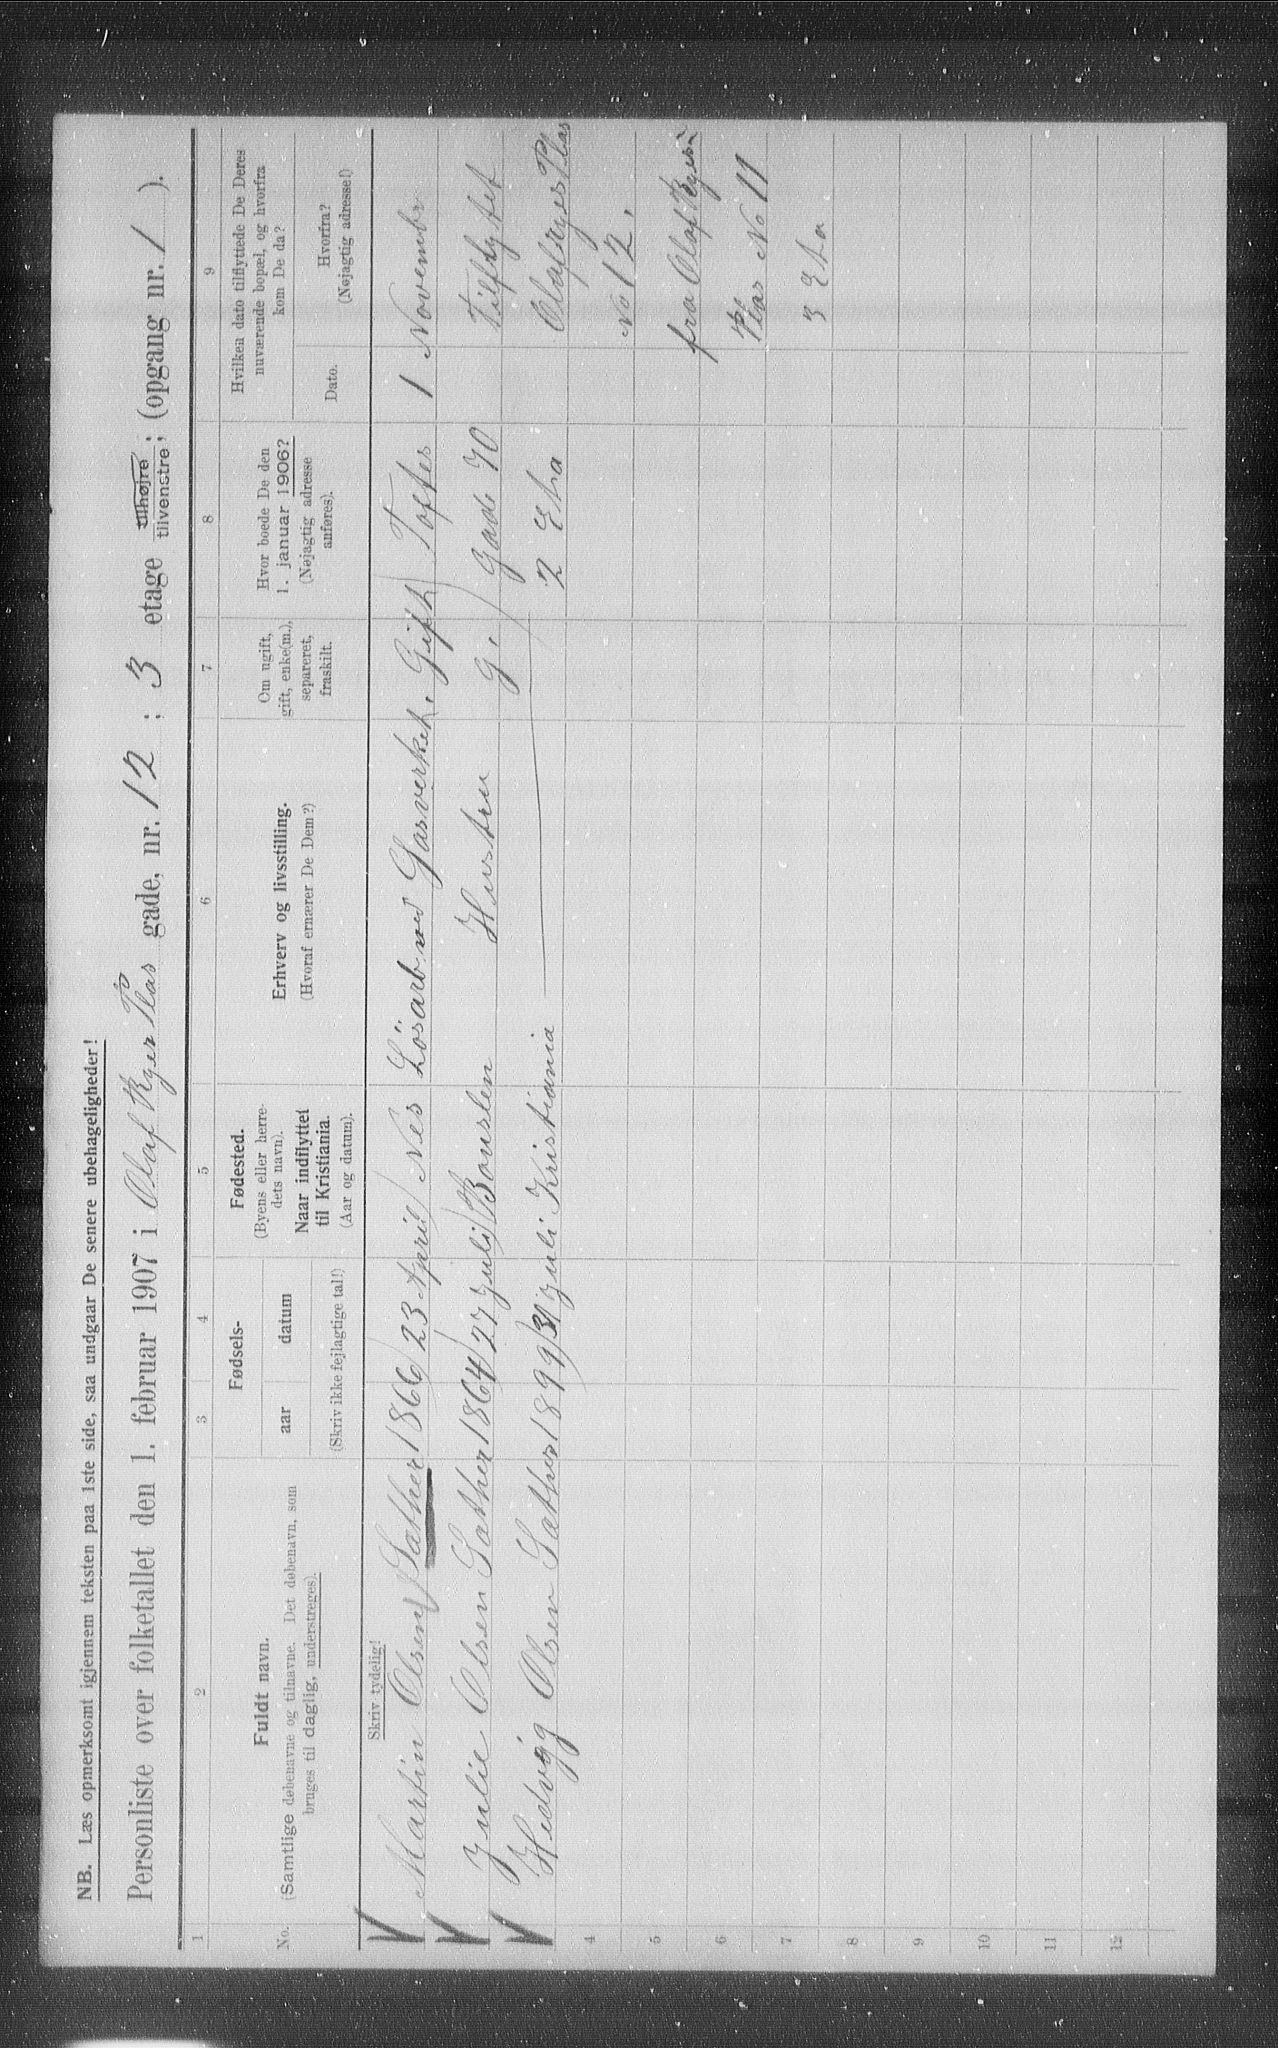 NB. Læs opmerksomt igjennem teksten paa 1ste side, saa undgaar De senere ubehageligheder!
Personliste over folketallet den 1. februar 1907 i Olaf Ryes Plas gade, nr. 12 ; 3 etage tilhøjre tilvenstre; (opgang nr. 1 ).
1 2 3 4 5 6 7 8 9
No.
Fuldt navn.
(Samtlige døbenavne og tilnavne. Det døbenavn, som
bruges til daglig, understreges).
Fødsels-
aar datum
(Skriv ikke fejlagtige tal!)
Fødested.
(Byens eller herre-
dets navn).
Naar indflyttet
til Kristiania.
(Aar og datum).
Erhverv og livsstilling.
(Hvoraf ernærer De Dem?)
Om ugift,
gift, enke(m.),
separeret,
fraskilt.
Hvor boede De den
1. januar 1906?
(Nøjagtig adresse
anføres).
Hvilken dato tilflyttede De Deres
nuværende bopæl, og hvorfra
kom De da?
Dato.
Hvorfra?
(Nøjagtig adresse!)
Skriv tydelig!
Martin Olsen Sæther 1866 23 April Nes Lösarb ved Gasverket. Gift Toftes 1 November
Julie Olsen Sæther 1864 27 Juli Hustru G. Gade 70 Tilflytet
Hedvig Olsen Sæther 1899 31 Juli Kristiania 2 Eta Olafryes Plas
4 No 12.
5 fra Olaf Ryes
6 Plas No 11
7 3 Eta
8
9
10
11
12